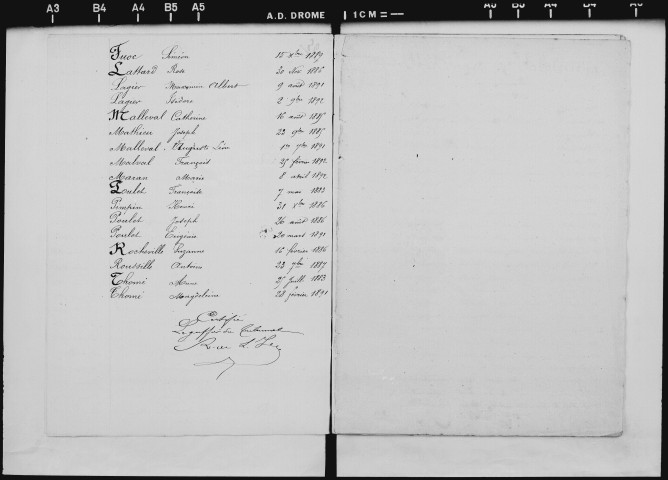 A3 B4 A4 B5 A5 A.D. DROME 1CM
Juge Siméon 15 Xbre 1889
Lattard Rose 20 Nov 1886
Lagier Maximin Albert 9 août 1891
Lagier Isidore 2 9bre 1892
Malleval Catherine 16 août 1885
Mathieu Joseph 23 9bre 1885
Malleval Auguste Léon 1er 7bre 1891
Malval François 25 février 1892
Maran Marie 8 avril 1892
Poulet Françoise 7 mai 1883
Pimpin Henri 31 Xbre 1886
Poulet Joseph 26 août 1886
Poulet Eugénie 20 mars 1891
Rocheville Suzanne 16 février 1886
Roussille Antoine 23 7bre 1887
Thomé Anne 27 juill. 1883
Thomé Magdeleine 28 février 1891
Certifié
Le greffier du Tribunal